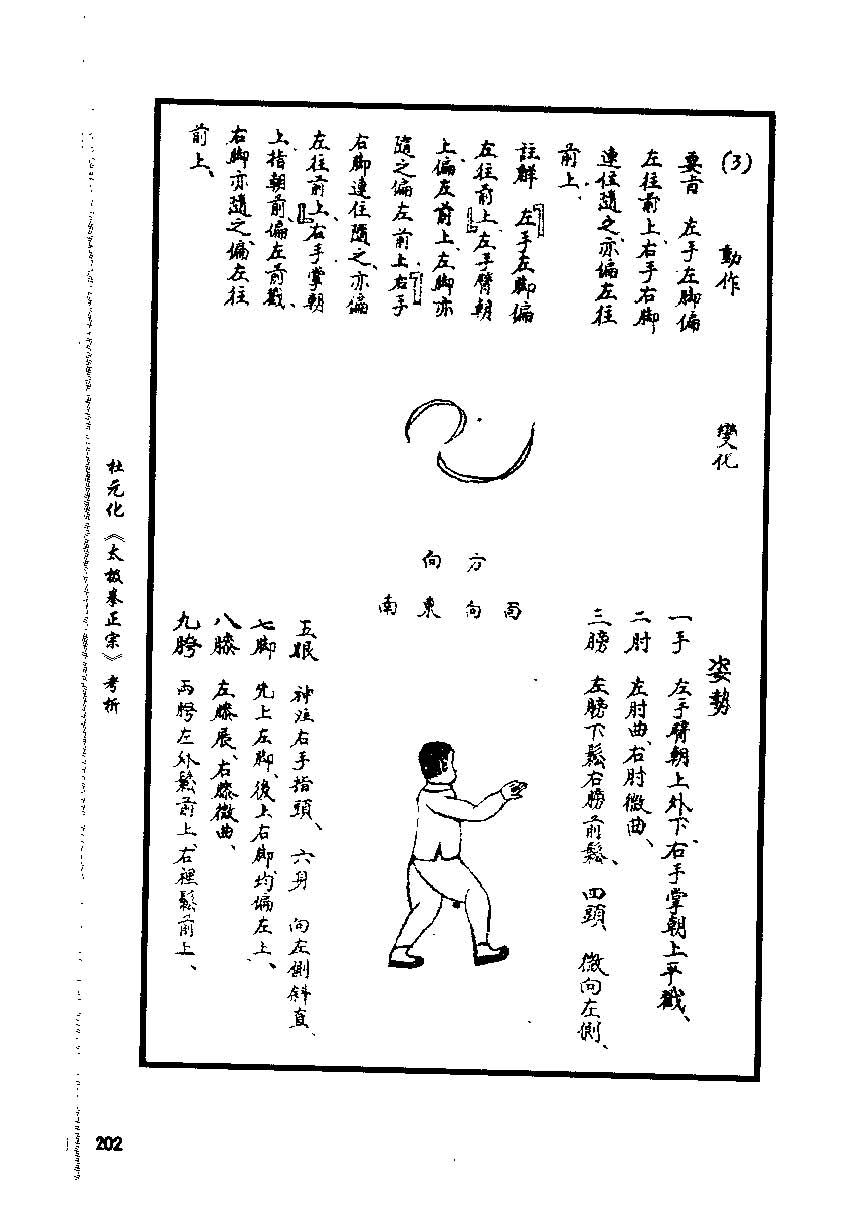 (3)　動作　變化　姿勢
要旨　左手左脚偏
左往前上、右手右脚
連住隨之、亦偏左往
前上、
註解　左手左脚偏
左往前上、左手臂朝
上、偏左前上、左脚亦
隨之偏左前上、右手
右脚連住隨之、亦偏
左往前上、右手掌朝
上、指朝前、偏左前戳、
右脚亦隨之、偏左往
前上、
方向
面向東南
一手　左手臂朝上外下、右手掌朝上平戳、
二肘　左肘曲、右肘微曲、
三膀　左膀下鬆、右膀前鬆、　四頭　微向左側、
五眼　神注右手指頭、　六身　向左側斜直、
七脚　先上左脚、後上右脚、均偏左上、
八膝　左膝展、右膝微曲、
九胯　两胯左外鬆前上、右裡鬆前上、
杜元化《太极拳正宗》考析
202